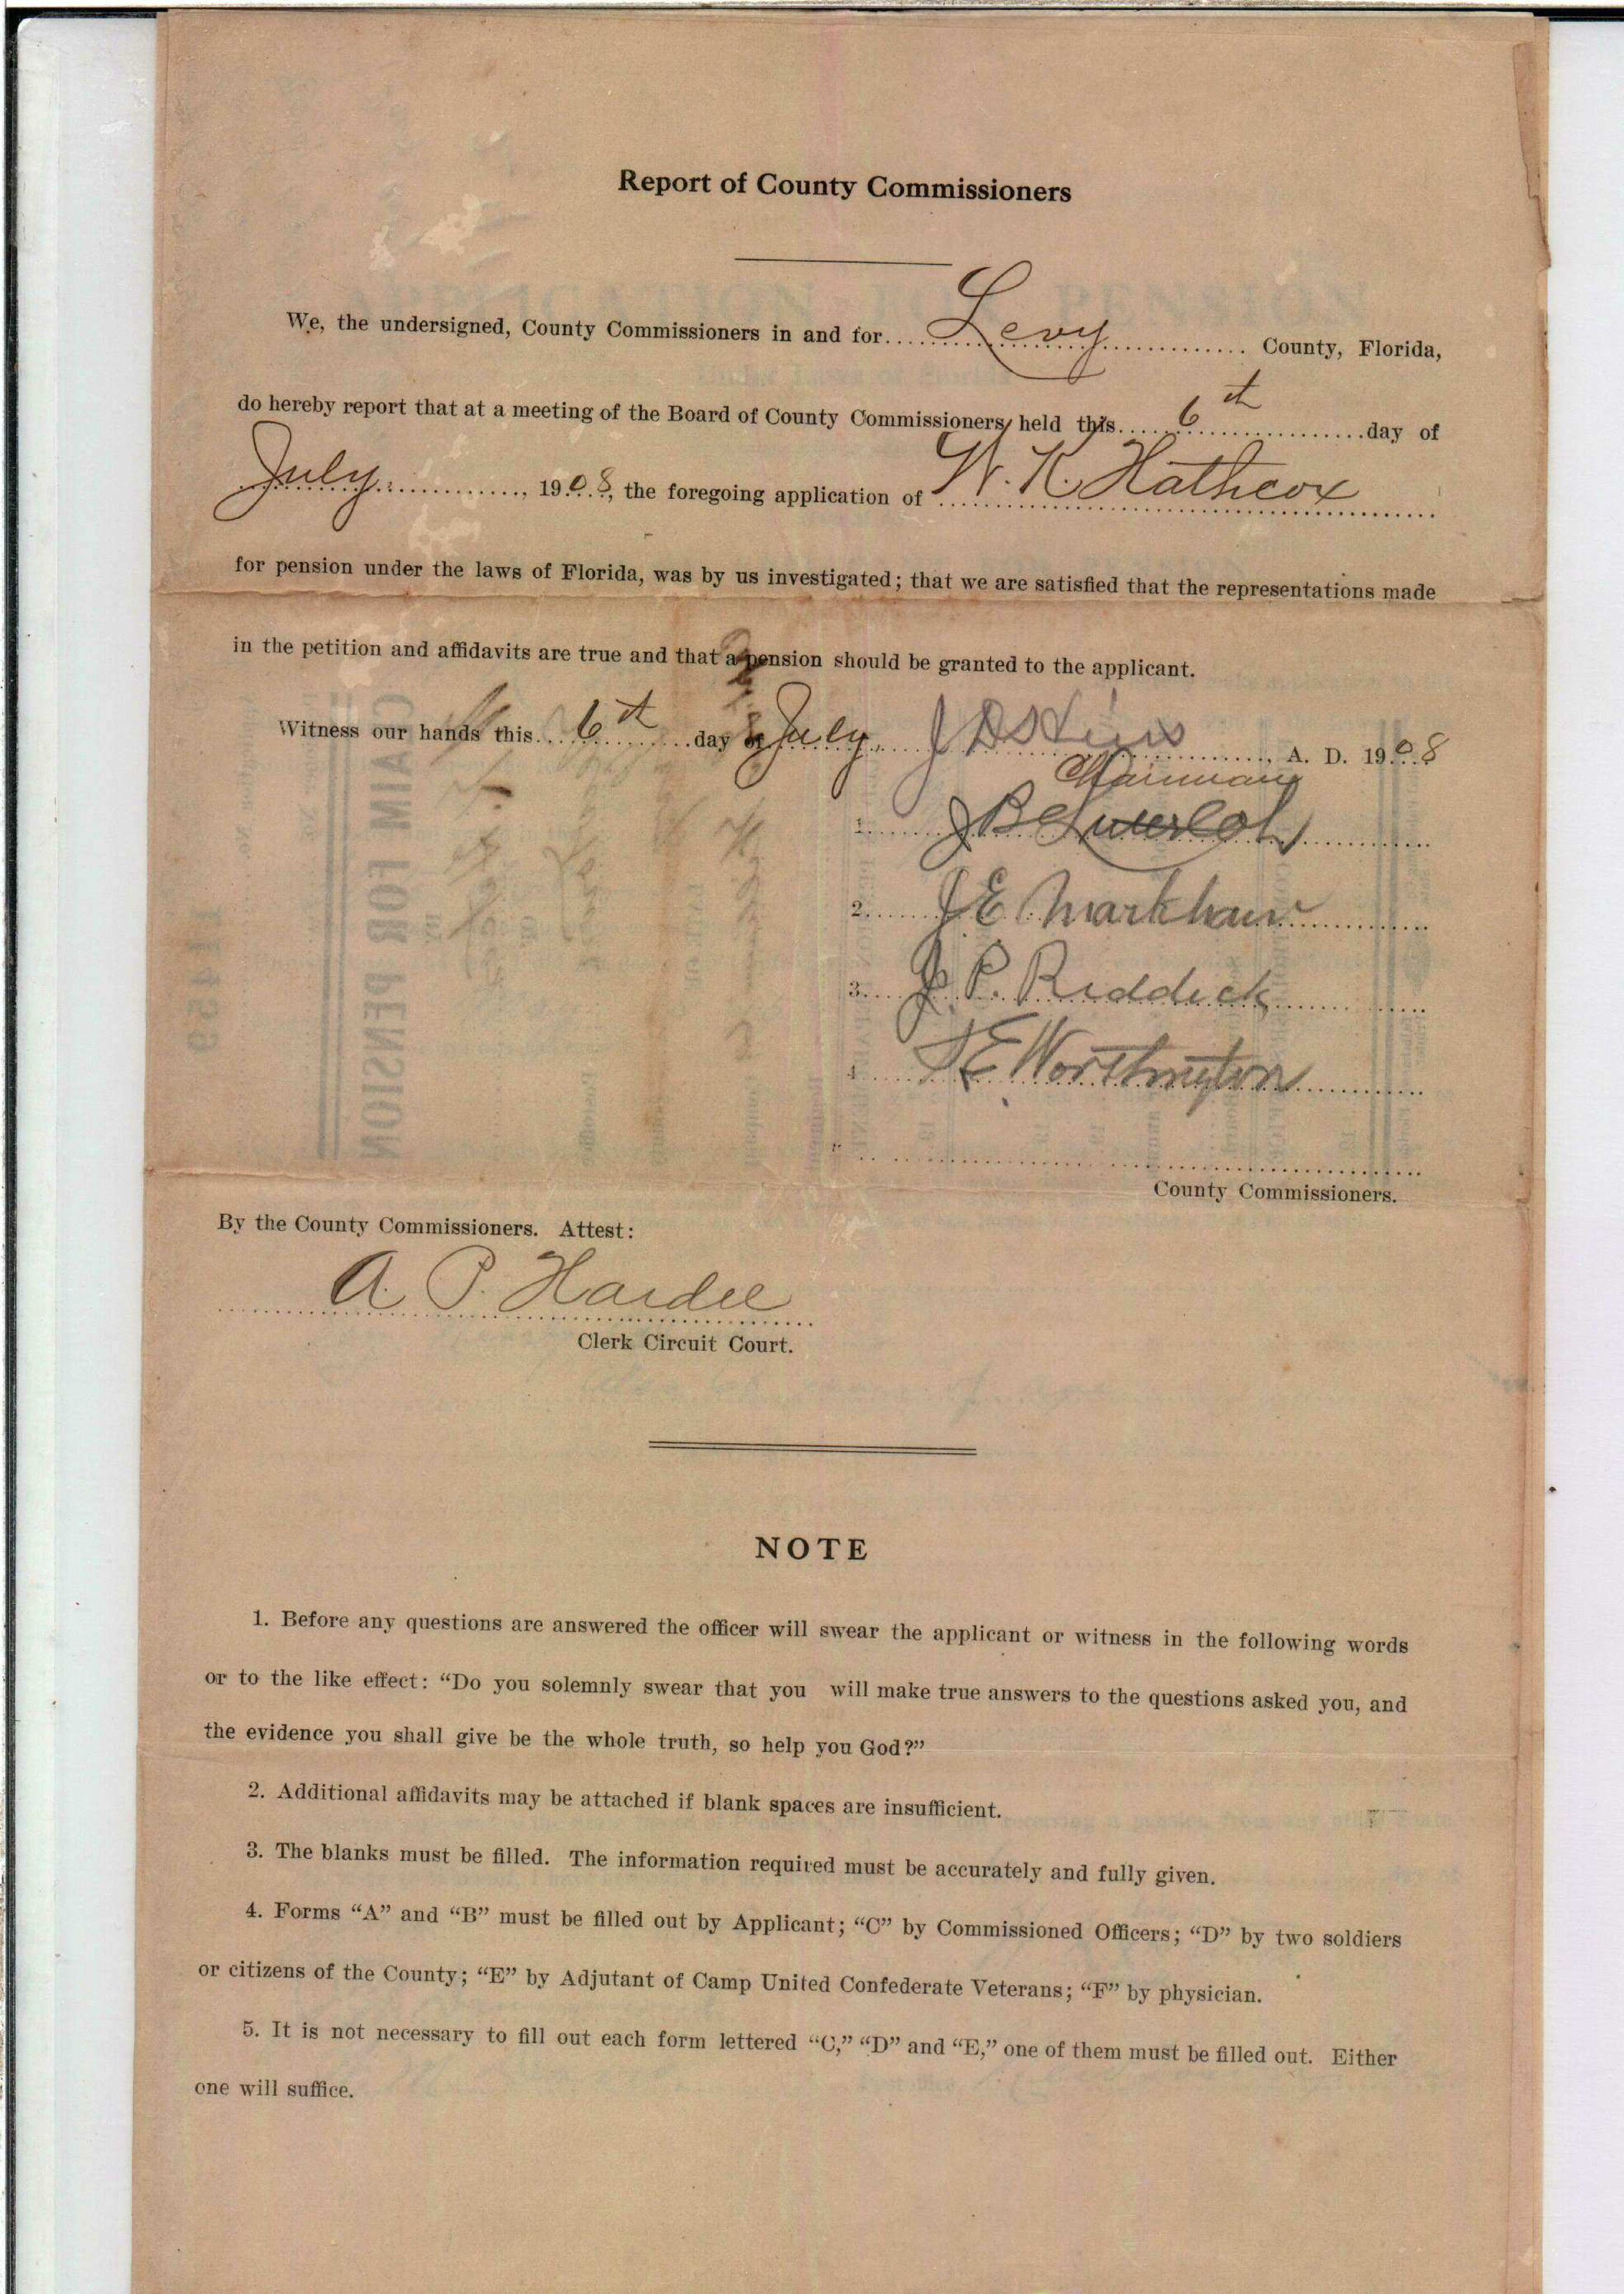 Report of County Commissioners
We, the undersigned, County Commissioners in and for Levy County, Florida,
do hereby report that at a meeting of the Board of County Commissioners, held this 6th day of
July, 1908, the foregoing application of W. K. Hathcox
for pension under the laws of Florida, was by us investigated; that we are satisfied that the representations made
in the petition and affidavits are true and that a pension should be granted to the applicant.
Witness our hands this 6th day of July, A. D. 1908
Chairman
1. J B
2. J E Markham
3. J. P. Riddick
4. Worthington
County Commissioners.
By the County Commissioners. Attest:
A. P. Hardee
Clerk Circuit Court.
NOTE
1. Before any questions are answered the officer will swear the applicant or witness in the following words
or to the like effect: “Do you solemnly swear that you will make true answers to the questions asked you, and
the evidence you shall give be the whole truth, so help you God?”
2. Additional affidavits may be attached if blank spaces are insufficient.
3. The blanks must be filled. The information required must be accurately and fully given.
4. Forms “A” and “B” must be filled out by Applicant; “C” by Commissioned Officers; “D” by two soldiers
or citizens of the County; “E” by Adjutant of Camp United Confederate Veterans; “F” by physician.
5. It is not necessary to fill out each form lettered “C,” “D” and “E,” one of them must be filled out. Either
one will suffice.